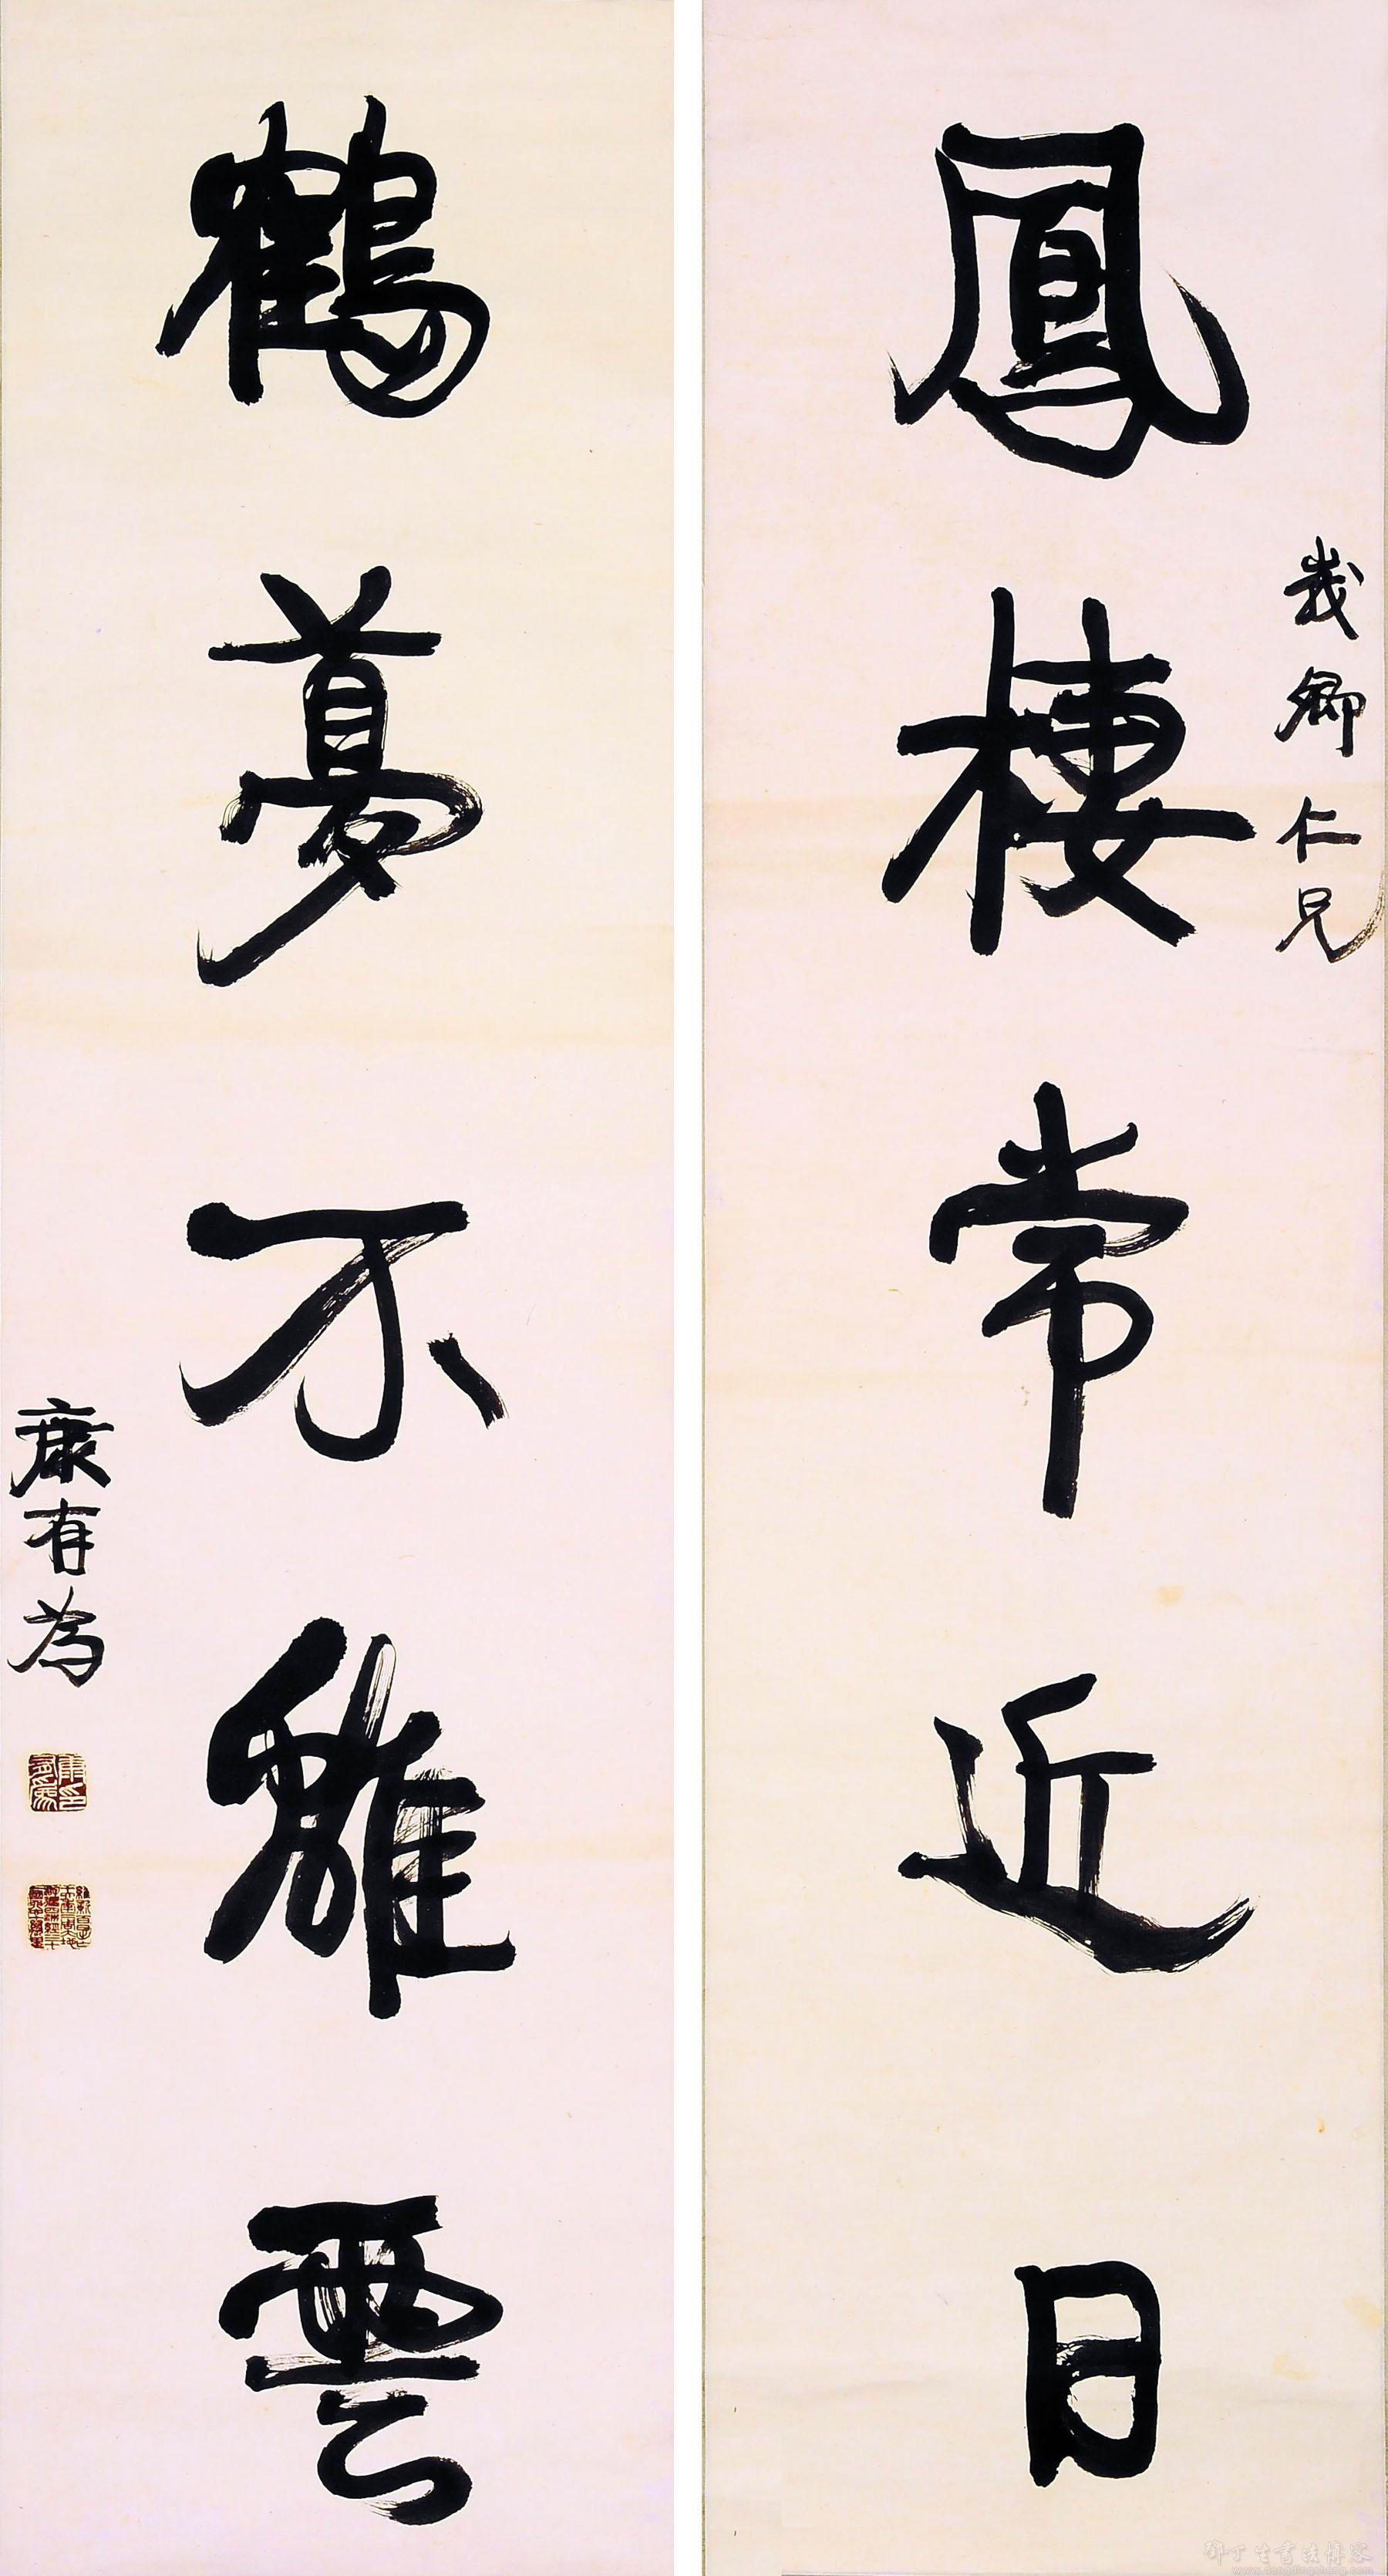 鳳棲常近日
哉卿仁兄
鶴夢不離雲
康有為